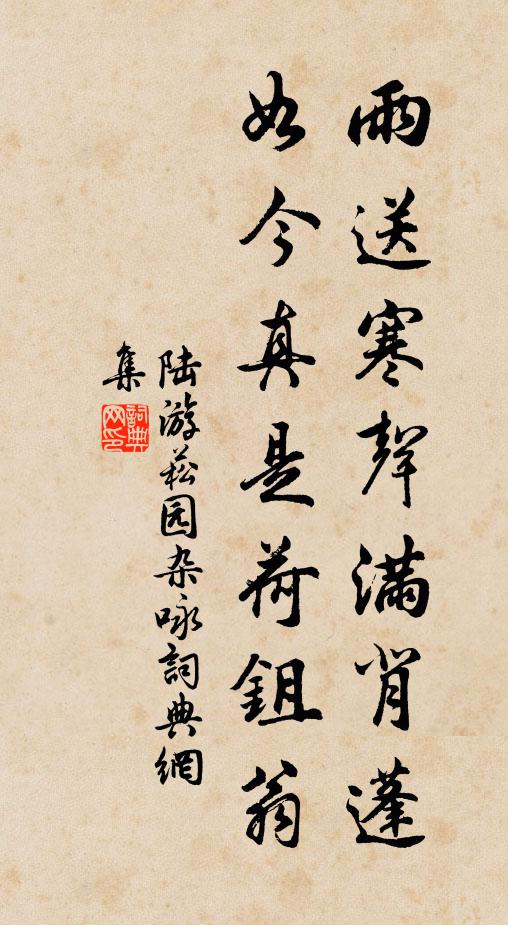 雨送寒聲滿背蓬
如今真是荷鉏翁
陸游菘园杂咏詞典網
集
詞典网印